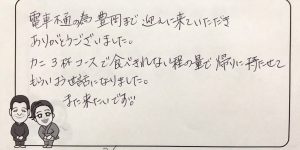 電車不通の為 豊岡まで 迎えに来ていただき
ありがとうございました。
カニ3杯コースで食べきれない程の量で 帰りに持たせて
もらい お世話になりました。
また来たいです!!